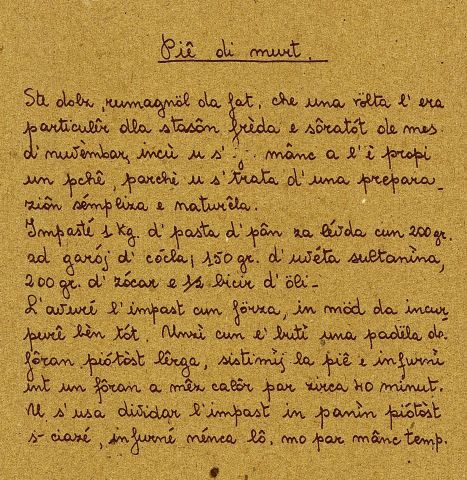 Piê di murt.
Ste dolz, rumagnöl da fat, che una völta l' era
particulêr dla stasôn frèda e sôratót de mes
d' nuvèmbar, incù u s' f . . mânc a l' è propi
un pchê, parchè u s' trata d' una prepara_
ziôn sémpliza e naturêla.
Impasté 1 Kg. d' pasta d' pân za lévda cun 200 gr.
ad garój d' cócla; 150 gr. d' uvéta sultanìna,
200 gr. d' zócar e 1/2 bicir d' öli -
L' avuré l' impast cun fôrza, in möd da incur
purê bèn tót. Unzì cun e' butì una padëla da
fôran piótòst lêrga, sistimìj la piê e infurnì
int un fôran a mêz calôr par zirca 40 minut.
U s' usa dividar l' impast in panìn piótòst
s-ciazé, infurnê nénca lô, mo par mânc temp.